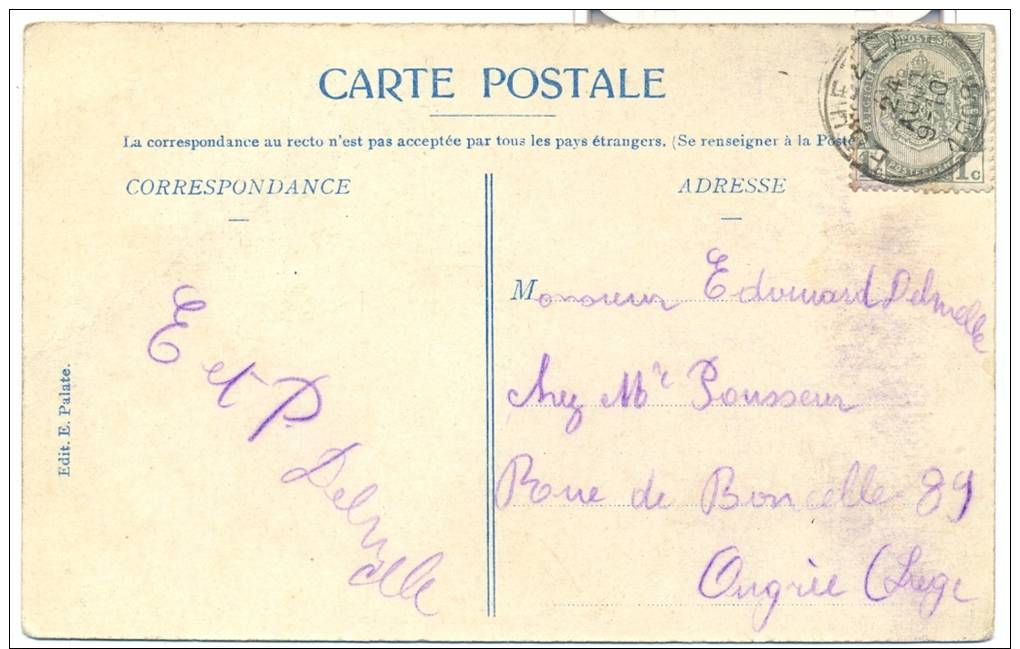 CARTE POSTALE
La correspondance au recto n'est pas acceptée par tous les pays étrangers. (Se renseigner à la Poste
CORRESPONDANCE
ADRESSE
Edit. E. Palate.
E et P. Delmelle
Monsieur Edouard Delmelle
Chez Mr Pousseur
Roue de Boncelle 89
Ougrée (Liege
POSTES
24
AOUT
9-10
POSTERIJEN
1 C